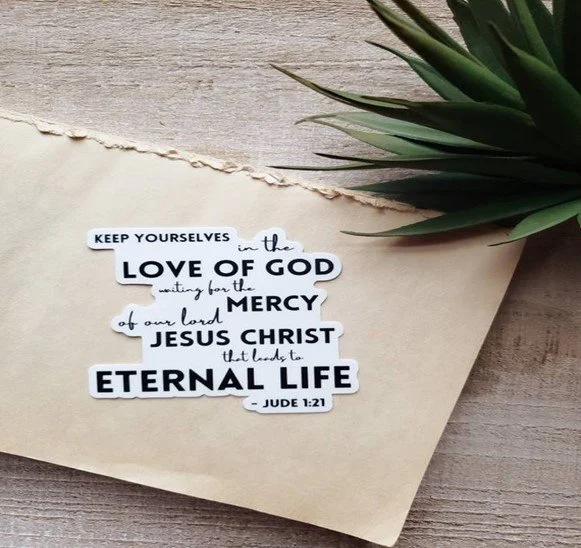 KEEP YOURSELVES in the
LOVE OF GOD
waiting for the
MERCY
of our lord
JESUS CHRIST
that leads to
ETERNAL LIFE
- JUDE 1:21